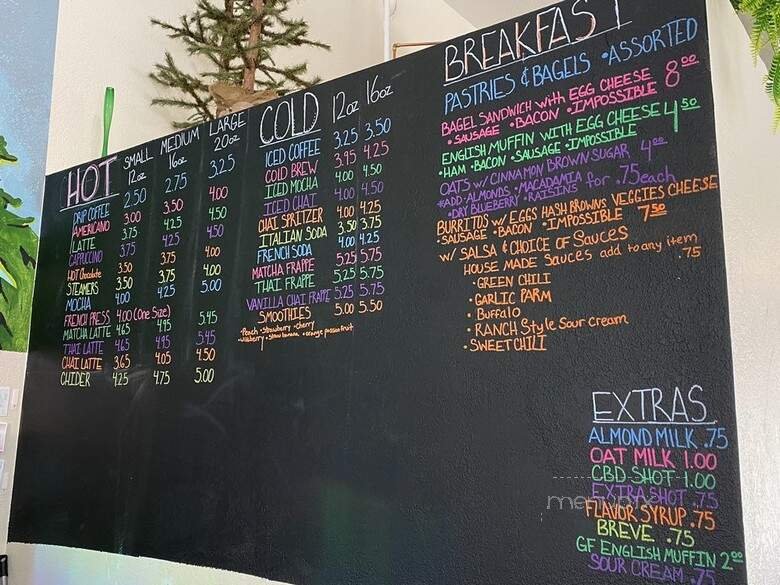 HOT
SMALL 12oz MEDIUM 16oz LARGE 20oz
DRIP COFFEE 2.50 2.75 3.25
AMERICANO 3.00 3.50 4.00
LATTE 3.75 4.25 4.50
CAPPUCCINO 3.75 4.25 4.50
HOT Chocolate 3.50 3.75 4.00
STEAMERS 3.50 3.75 4.00
MOCHA 4.00 4.25 5.00
FRENCH PRESS 4.00 (One Size)
MATCHA LATTE 4.65 4.95 5.45
THAI LATTE 4.65 4.95 5.45
CHAI LATTE 3.65 4.05 4.50
CHIDER 4.25 4.75 5.00
COLD 12oz 16oz
ICED COFFEE 3.25 3.50
COLD BREW 3.95 4.25
ICED MOCHA 4.00 4.50
ICED CHAI 4.00 4.50
CHAI SPRITZER 4.00 4.25
ITALIAN SODA 3.50 3.75
FRENCH SODA 4.00 4.25
MATCHA FRAPPE 5.25 5.75
THAI FRAPPE 5.25 5.75
VANILLA CHAI FRAPPE 5.25 5.75
SMOOTHIES 5.00 5.50
•Peach •Strawberry •Cherry
•Wildberry •Strawbanana •orange passionfruit
BREAKFAST
PASTRIES & BAGELS •ASSORTED
BAGEL SANDWICH with EGG CHEESE 8.00
•SAUSAGE •BACON •IMPOSSIBLE
ENGLISH MUFFIN WITH EGG CHEESE 4.50
•HAM •BACON •SAUSAGE •IMPOSSIBLE
OATS w/ CINNAMON BROWN SUGAR 4.00
*ADD •ALMONDS •MACADAMIA
•DRY BLUEBERRY •RAISINS for .75 each
BURRITOS w/ EGGS HASH BROWNS VEGGIES CHEESE
•SAUSAGE •BACON •IMPOSSIBLE 7.50
w/ SALSA & CHOICE OF SAUCES
HOUSE MADE SAUCES add to any item .75
• GREEN CHILI
• GARLIC PARM
• Buffalo
• RANCH Style Sour Cream
• SWEET CHILI
EXTRAS
ALMOND MILK .75
OAT MILK 1.00
CBD SHOT 1.00
EXTRA SHOT .75
FLAVOR SYRUP .75
BREVE .75
GF ENGLISH MUFFIN 2.00
SOUR CREAM .75